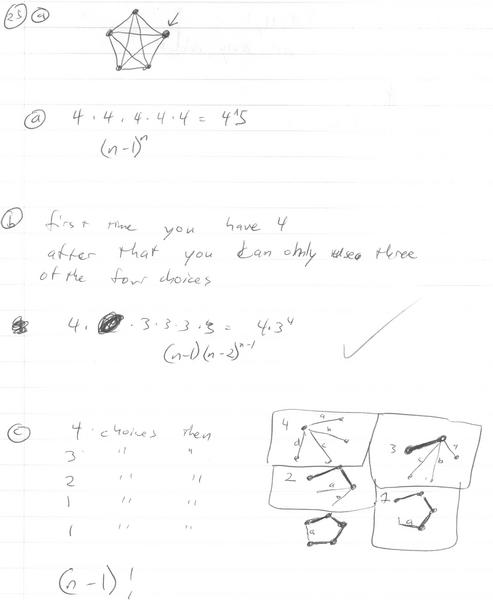 25 a
a 4 · 4 · 4 · 4 · 4 = 4^5
(n-1)^n
b first time you have 4
after that you can only use three
of the four choices
4 · 3 · 3 · 3 · 3 = 4 · 3^4
(n-1)(n-2)^n-1
c 4 choices then
3 " "
2 " "
1 " "
1 " "
(n-1)!
4 a b c d
3 a b c
2 a
1 a
a